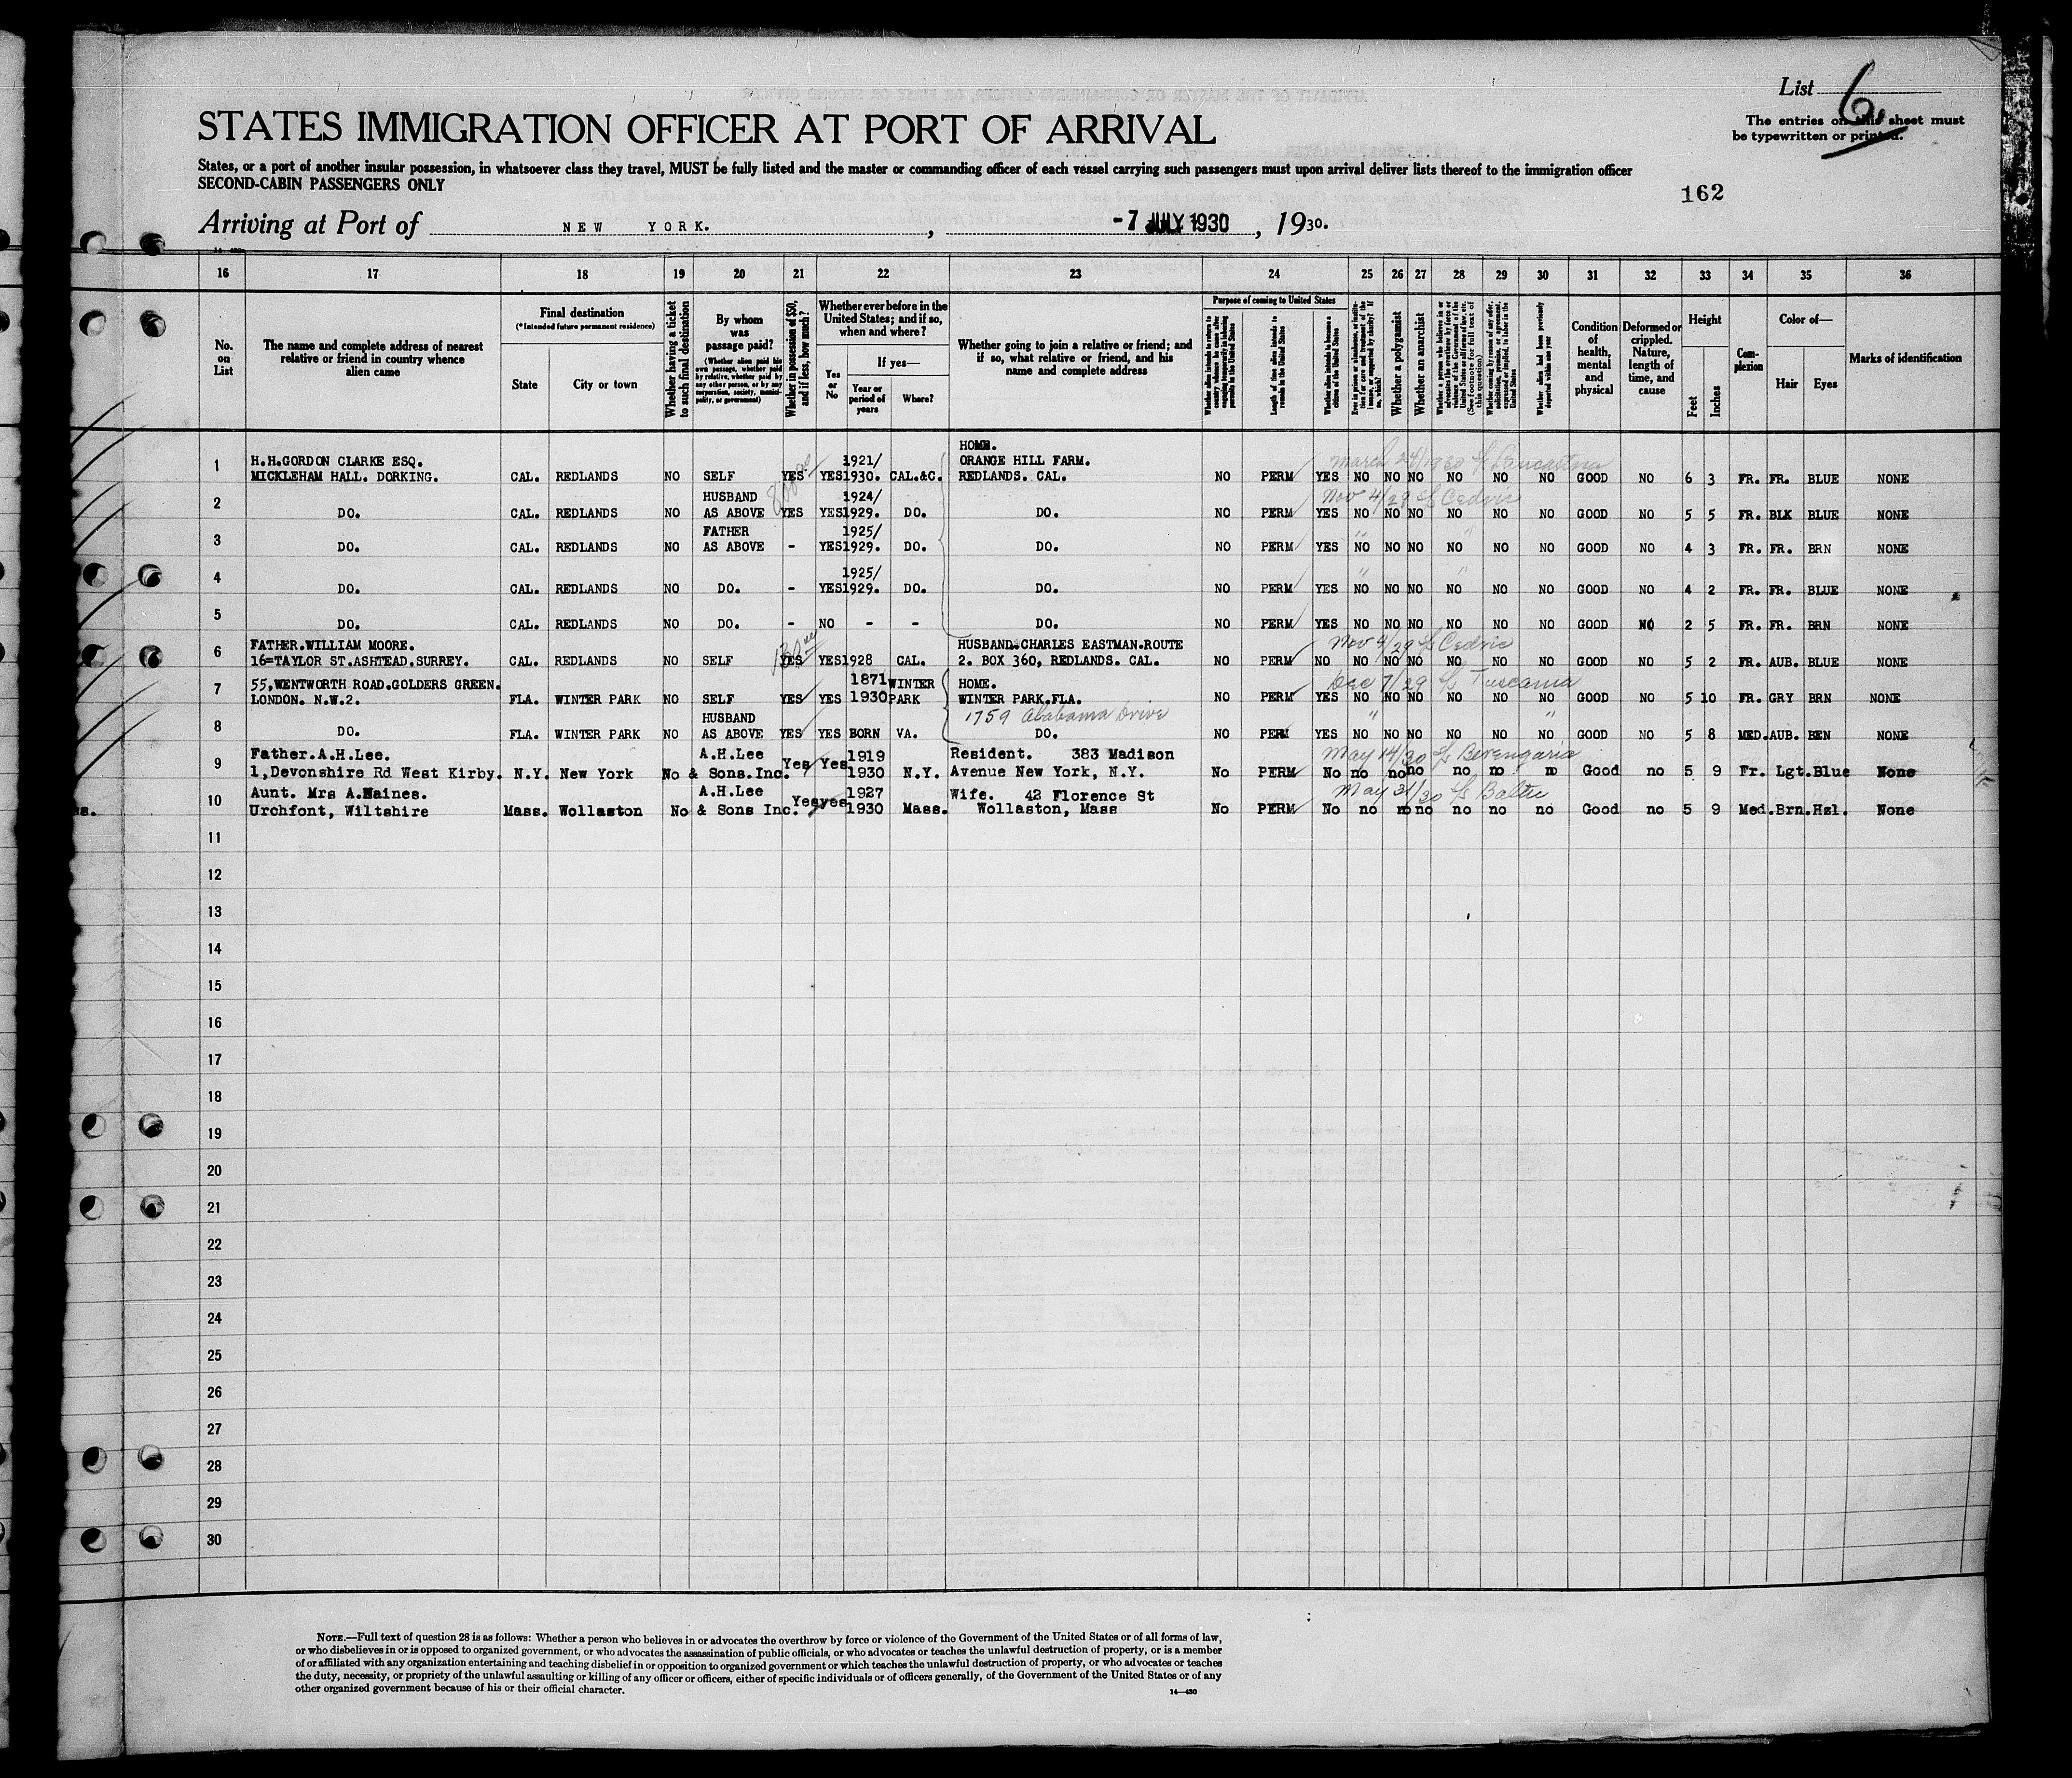 List 6.
The entries on this sheet must
be typewritten or printed.
STATES IMMIGRATION OFFICER AT PORT OF ARRIVAL
States, or a port of another insular possession, in whatsoever class they travel, MUST be fully listed and the master or commanding officer of each vessel carrying such passengers must upon arrival deliver lists thereof to the immigration officer
SECOND-CABIN PASSENGERS ONLY
162
Arriving at Port of NEW YORK. , -7 JULY 1930 , 1930.
16 17 18 19 20 21 22 23 24 25 26 27 28 29 30 31 32 33 34 35 36
No. on List
The name and complete address of nearest relative or friend in country whence alien came
Final destination
(*Intended future permanent residence)
State
City or town
Whether having a ticket to such final destination
By whom was passage paid?
(Whether alien paid his own passage, whether paid by relative, whether paid by any other person, or by any corporation, society, municipality, or government)
Whether in possession of $50, and if less, how much?
Whether ever before in the United States; and if so, when and where?
Yes or No
If yes—
Year or period of years
Where?
Whether going to join a relative or friend; and if so, what relative or friend, and his name and complete address
Purpose of coming to United States
Whether alien intends to return to country whence he came after engaging temporarily in laboring pursuits in the United States
Length of time alien intends to remain in the United States
Whether alien intends to become a citizen of the United States
Whether a polygamist
Whether an anarchist
Whether alien had been previously deported within one year
Condition of health, mental and physical
Deformed or crippled. Nature, length of time, and cause
Height
Feet
Inches
Complexion
Color of—
Hair
Eyes
Marks of identification
March 24/1930 Lancastria
1 H.H.GORDON CLARKE ESQ. MICKLEHAM HALL. DORKING. CAL. REDLANDS NO SELF YES YES 1921/ 1930. CAL.&C. HOME. ORANGE HILL FARM. REDLANDS. CAL. NO PERM YES NO NO NO NO NO NO GOOD NO 6 3 FR. FR. BLUE NONE
Nov 4/29 Cedric
2 DO. CAL. REDLANDS NO HUSBAND AS ABOVE YES YES 1924/ 1929. DO. DO. NO PERM YES NO NO NO NO NO NO GOOD NO 5 5 FR. BLK BLUE NONE
3 DO. CAL. REDLANDS NO FATHER AS ABOVE - YES 1925/ 1929. DO. DO. NO PERM YES NO NO NO NO NO NO GOOD NO 4 3 FR. FR. BRN NONE
4 DO. CAL. REDLANDS NO DO. - YES 1925/ 1929. DO. DO. NO PERM YES NO NO NO NO NO NO GOOD NO 4 2 FR. FR. BLUE NONE
5 DO. CAL. REDLANDS NO DO. - NO - - DO. NO PERM YES NO NO NO NO NO NO GOOD NO 2 5 FR. FR. BRN NONE
Nov 4/29 Cedric
6 FATHER.WILLIAM MOORE. 16=TAYLOR ST.ASHTEAD.SURREY. CAL. REDLANDS NO SELF YES YES 1928 CAL. HUSBAND.CHARLES EASTMAN.ROUTE 2. BOX 360, REDLANDS. CAL. NO PERM NO NO NO NO NO NO NO GOOD NO 5 2 FR. AUB. BLUE NONE
Dec 7/29 Tuscania
7 55,WENTWORTH ROAD.GOLDERS GREEN. LONDON. N.W.2. FLA. WINTER PARK NO SELF YES YES 1871 1930 WINTER PARK HOME. WINTER PARK.FLA. NO PERM YES NO NO NO NO NO NO GOOD NO 5 10 FR. GRY BRN NONE
1759 Alabama Drive
8 DO. FLA. WINTER PARK NO HUSBAND AS ABOVE YES YES BORN VA. DO. NO PERM YES NO NO NO NO NO NO GOOD NO 5 8 MED. AUB. BEN NONE
May 14/30 Berengaria
9 Father.A.H.Lee. 1,Devonshire Rd West Kirby. N.Y. New York No A.H.Lee & Sons.Inc. Yes Yes 1919 1930 N.Y. Resident. 383 Madison Avenue New York, N.Y. No PERM No no no no no no no Good no 5 9 Fr. Lgt. Blue None
May 31/30 Baltic
10 Aunt. Mrs A.Haines. Urchfont, Wiltshire Mass. Wollaston No A.H.Lee & Sons Inc. Yes yes 1927 1930 Mass. Wife. 42 Florence St Wollaston, Mass No PERM No no no no no no no Good no 5 9 Med. Brn. Hzl. None
11
12
13
14
15
16
17
18
19
20
21
22
23
24
25
26
27
28
29
30
NOTE.—Full text of question 28 is as follows: Whether a person who believes in or advocates the overthrow by force or violence of the Government of the United States or of all forms of law,
or who disbelieves in or is opposed to organized government, or who advocates the assassination of public officials, or who advocates or teaches the unlawful destruction of property, or is a member
of or affiliated with any organization entertaining and teaching disbelief in or opposition to organized government or which teaches the unlawful destruction of property, or who advocates or teaches
the duty, necessity, or propriety of the unlawful assaulting or killing of any officer or officers, either of specific individuals or of officers generally, of the Government of the United States or of any
other organized government because of his or their official character.
14—430